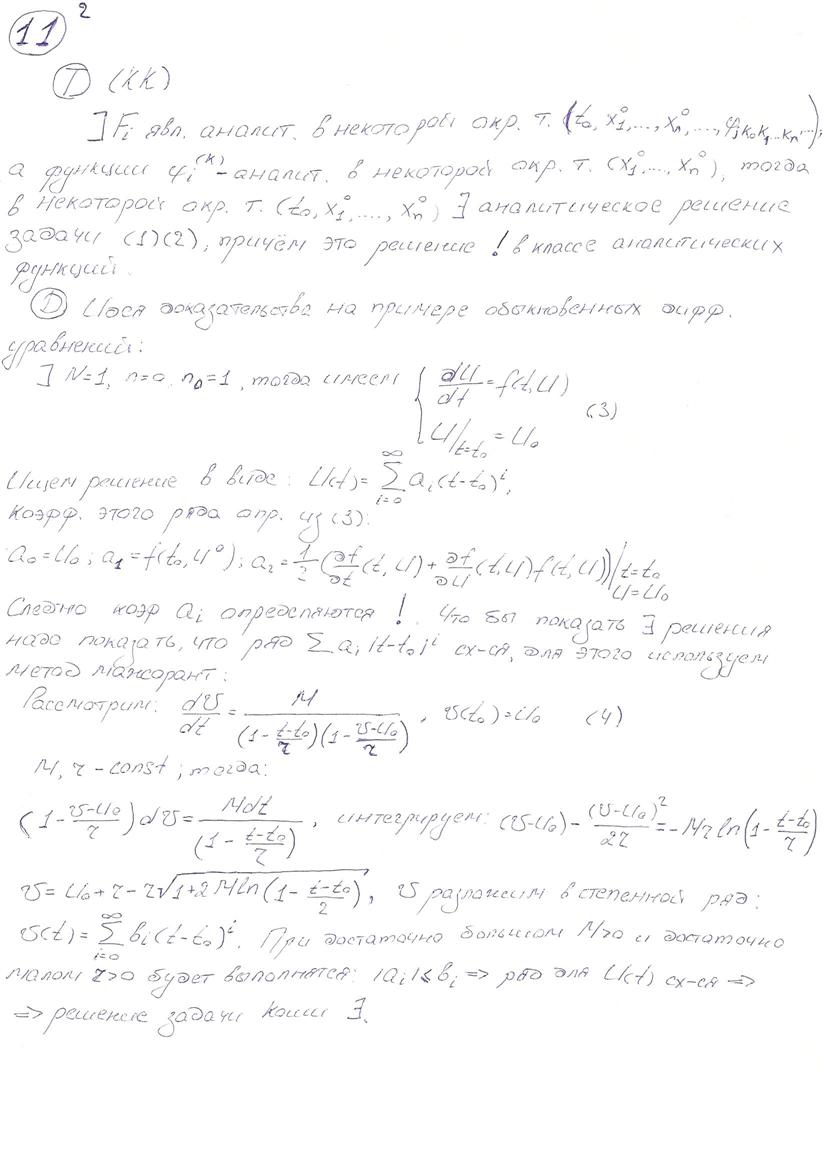 11²
Т (КК)
] Fᵢ явл. аналит. в некоторой окр. т. (t₀, x₁⁰,..., xₙ⁰,..., φⱼₖ₀ₖ₁...ₖₙ...),
а функции φᵢ⁽ᵏ⁾-аналит. в некоторой окр. т. (x₁⁰,..., xₙ⁰), тогда
в некоторой окр. т. (t₀, x₁⁰,..., xₙ⁰) ∃ аналитическое решение
задачи (1)(2), причём это решение ! в классе аналитических
функций.
D Идея доказательства на примере обыкновенных дифф.
уравнений:
] N=1, n=0, n₀=1, тогда имеем { dU/dt = f(t,U)
U/t=t₀ = U₀ (3)
Ищем решение в виде: U(t)= ∑_{i=0}^∞ aᵢ(t-t₀)ⁱ,
коэфф. этого ряда опр. из (3):
a₀=U₀; a₁=f(t₀,U⁰); a₂=1/2 (∂f/∂t (t,U) + ∂f/∂U (t,U) f(t,U))/t=t₀ U=U₀
Следно коэф aᵢ определяются !. Что бы показать ∃ решения
надо показать, что ряд ∑ aᵢ |t-t₀|ⁱ сх-ся, для этого используем
метод мажорант:
Рассмотрим: dv/dt = M/((1-(t-t₀)/r)(1-(v-U₀)/r)), v(t₀)=U₀ (4)
M, r - const; тогда:
(1-(v-U₀)/r)dv = Mdt/(1-(t-t₀)/r), интегрируем: (v-U₀)-(v-U₀)²/2r = -Mr ln(1-(t-t₀)/r)
v= U₀+r-r√(1+2Mln(1-(t-t₀)/2)), v разложим в степенной ряд:
v(t)= ∑_{i=0}^∞ bᵢ(t-t₀)ⁱ. При достаточно большом M>0 и достаточно
малом r>0 будет выполнятся: |aᵢ|≤bᵢ => ряд для U(t) сх-ся =>
=> решение задачи Коши ∃.